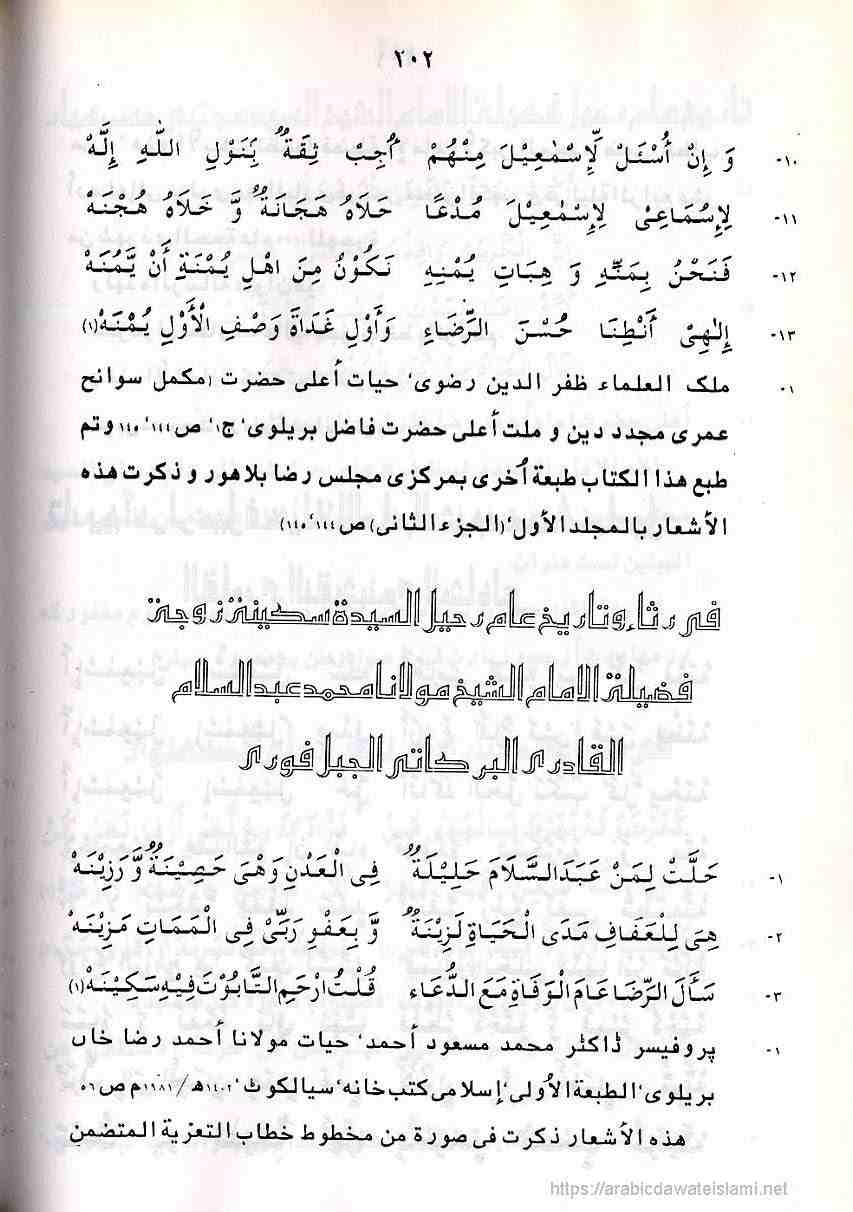 ٢٠٢
١٠- وَ إِنْ أُسْئَلْ لِّإِسْمٰعِيْلَ مِنْهُمْ أُجِبْ ثِقَةٌ بِنَوْلِ اللّٰهِ إِلَّهْ
١١- لِإِسْمَاعِىْ لِإِسْمٰعِيْلَ مُدْعًا حَلَاهُ هَجَانَةٌ وَّ خَلَاهُ هُجْنَهْ
١٢- فَنَحْنُ بِمَنِّهِ وَ هِبَاتِ يُمْنِهِ نَكُوْنُ مِنَ اهْلِ يُمْنَةِ أَنْ يَّمُنَّهْ
١٣- إِلٰهِىْ أَنْطِنَا حُسْنَ الرَّضَاءِ وَأَوْلِ غَدَاةَ وَصْفِ الْأَوْلِ يُمْنَهْ(١)
١- ملک العلماء ظفر الدين رضوى٬ حيات أعلى حضرت (مكمل سوانح
عمرى مجدد دين و ملت أعلى حضرت فاضل بريلوى٬ ج١٬ ص١٤٤٬ ١٤٥ وتم
طبع هذا الكتاب طبعة أخرى بمركزى مجلس رضا بلاهور و ذكرت هذه
الأشعار بالمجلد الأول٬ (الجزء الثانى) ص١٤٤٬ ١٤٥)
فى رثاء وتاريخ عام رحيل السيدة سكينة زوجة
فضيلة الامام الشيخ مولانا محمد عبد السلام
القادرى البركاتى الجبل فورى
١- حَلَّتْ لِمَنْ عَبَدَ السَّلَامَ حَلِيْلَةٌ فِى الْعَدْنِ وَهْىَ حَصِيْنَةٌ وَّرَزِيْنَهْ
٢- هِىَ لِلْعَفَافِ مَدَى الْحَيَاةِ لَزِيْنَةٌ وَّ بِعَفْوِ رَبِّىْ فِى الْمَمَاتِ مَزِيْنَهْ
٣- سَأَلَ الرَّضَا عَامَ الْوَفَاةِ مَعَ الدُّعَاءِ قُلْتُ ارْحَمِ التَّابُوْتَ فِيْهِ سَكِيْنَهْ(١)
١- پروفيسر ڈاكٹر محمد مسعود أحمد٬ حيات مولانا أحمد رضا خاں
بريلوى٬ الطبعة الأولى٬ إسلامى كتب خانه٬ سيالكوٹ٬ ١٤٠٢ھ/١٩٨١م ص٥٦
هذه الأشعار ذكرت فى صورة من مخطوط خطاب التعزية المتضمن
https://arabicdawateislami.net